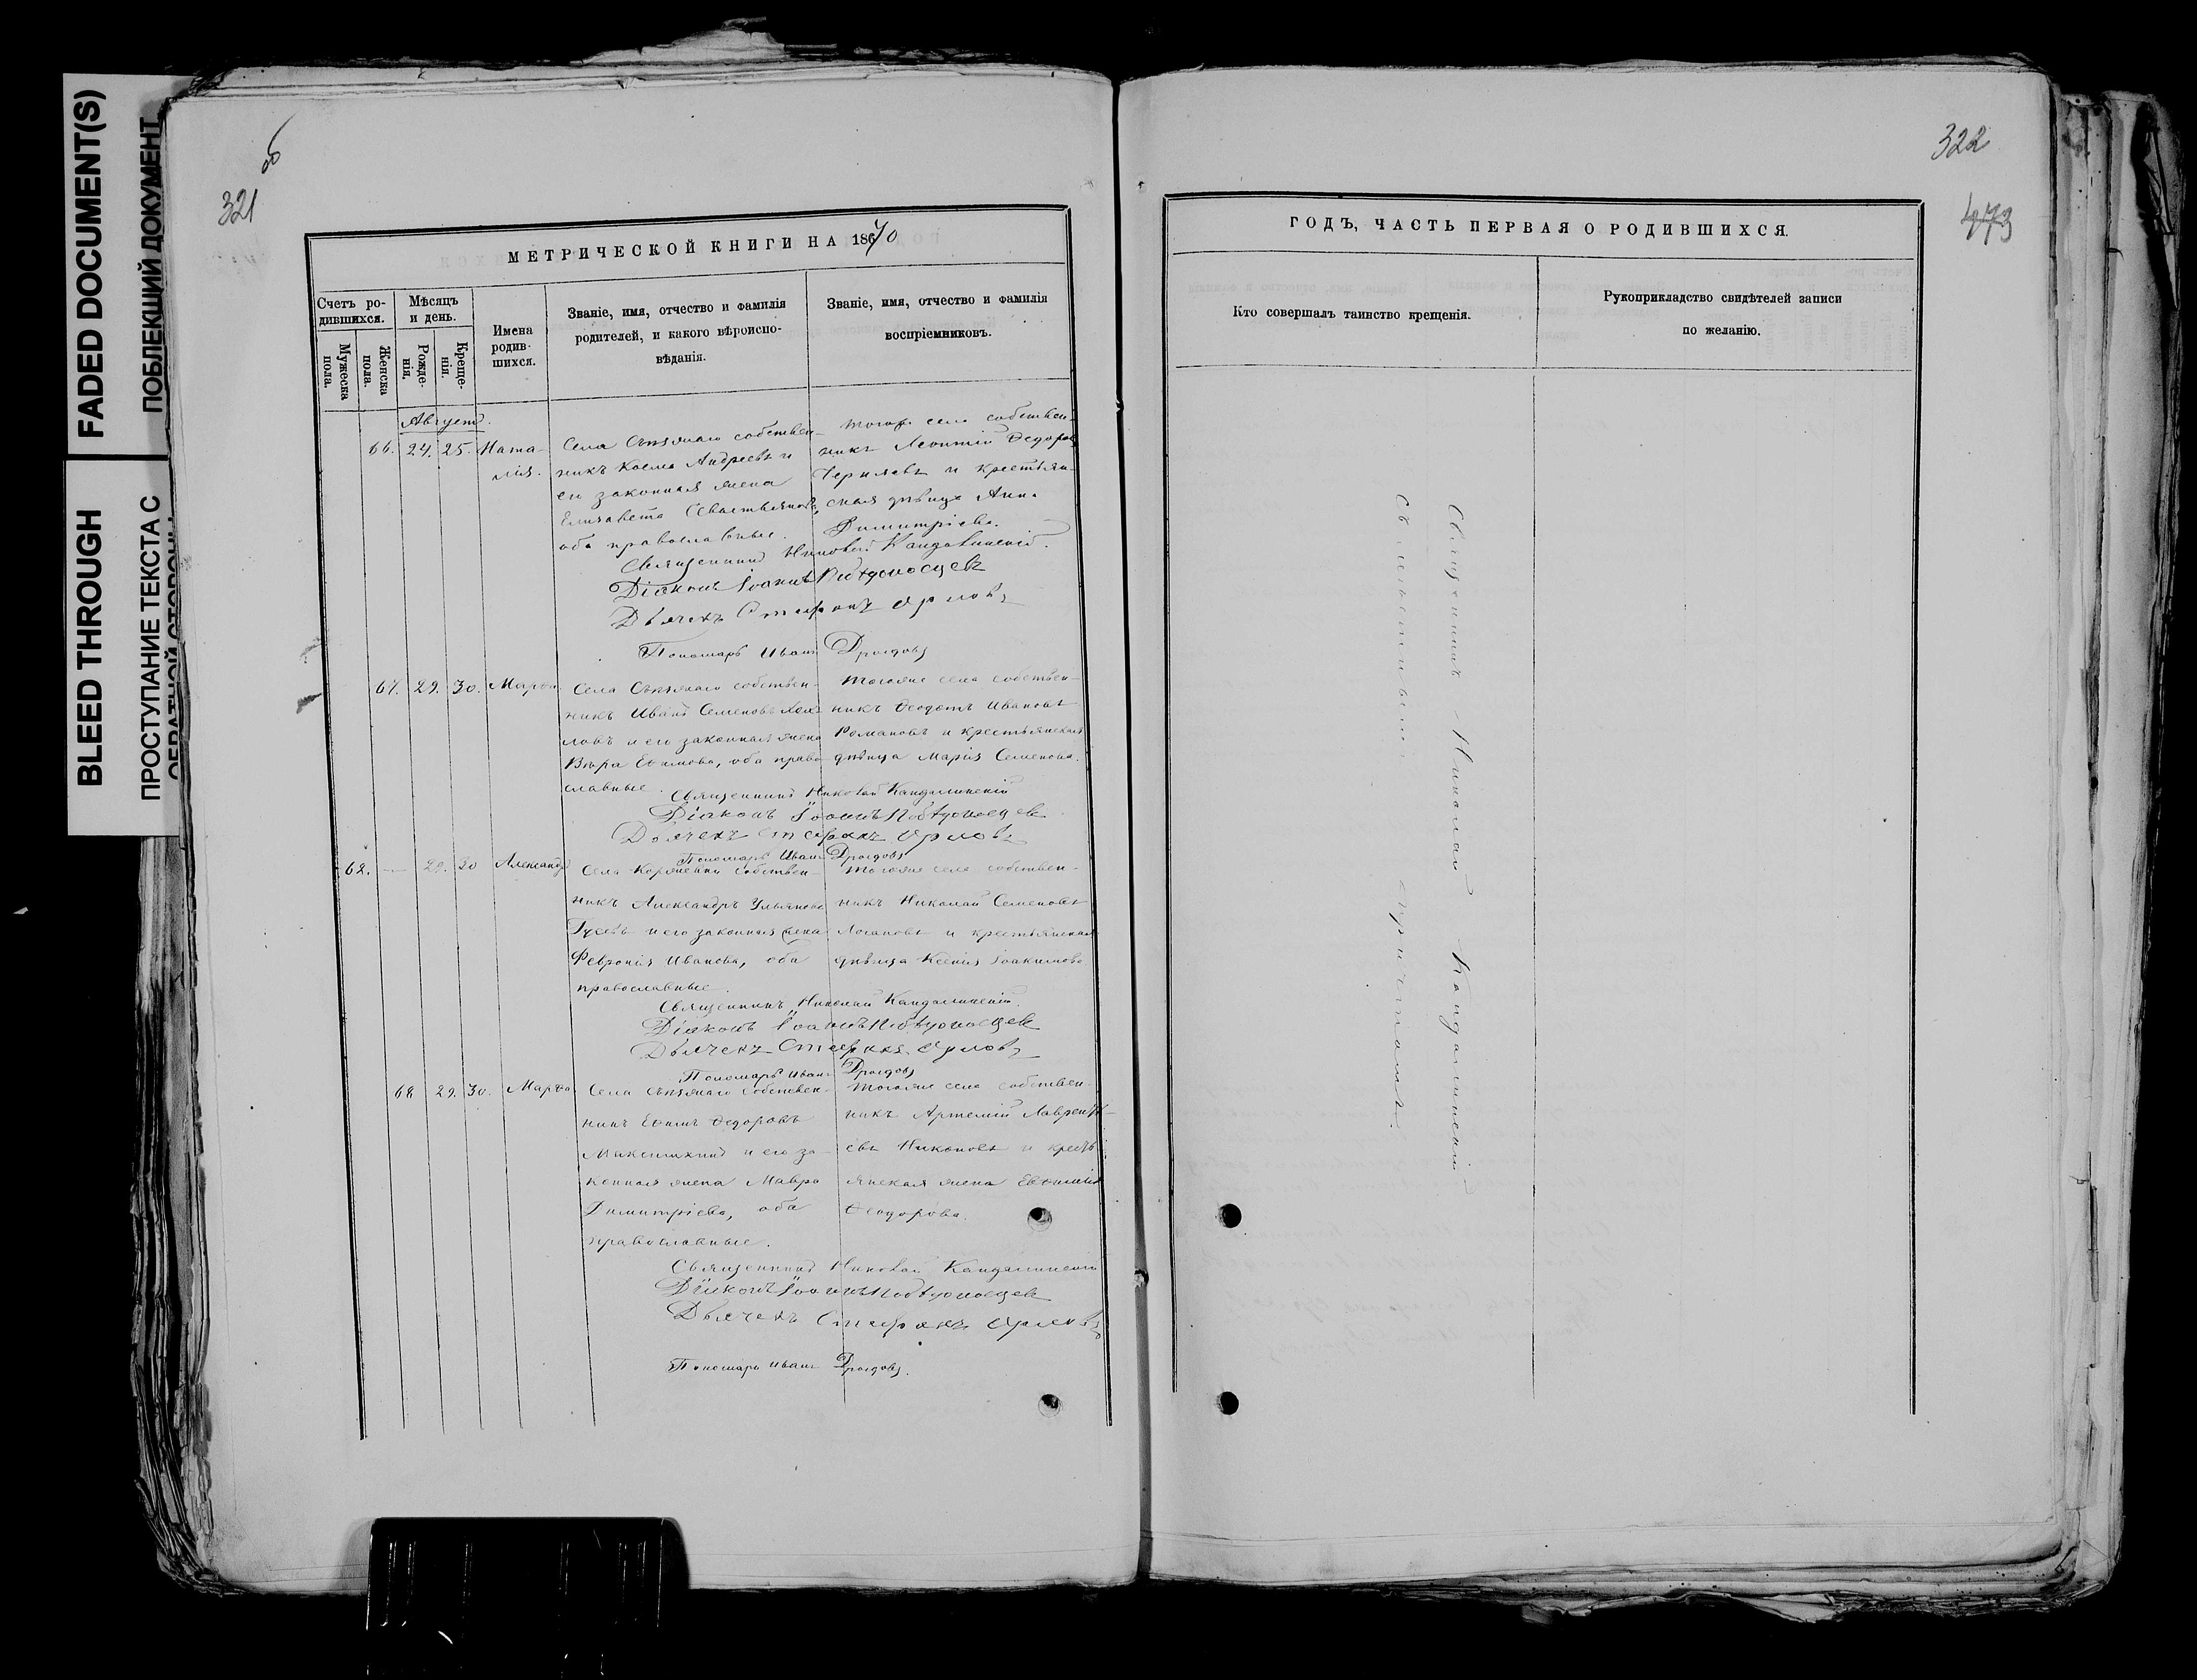 FADED DOCUMENT(S)
ПОБЛЕКШИЙ ДОКУМЕНТ
BLEED THROUGH
ПРОСТУПАНИЕ ТЕКСТА С
ОБРАТНОЙ СТОРОНЫ
об
321
МЕТРИЧЕСКОЙ КНИГИ НА 1870
Счетъ ро-
дившихся.
Мужеска
пола.
Женска
пола.
Мѣсяцъ
и день.
Рожде-
нія.
Креще-
нія.
Имена
родив-
шихся.
Званіе, имя, отчество и фамилія
родителей, и какого вѣроиспо-
вѣданія.
Званіе, имя, отчество и фамилія
воспріемниковъ.
Августъ.
66. 24. 25. Ната-
лія.
Села собствен-
никъ Косма Андреевъ и
его законная жена
Елизавета Севастьянова,
оба православные.
тогоже села собствен-
никъ Леонтій Ѳедоровъ
и крестьян-
ская дѣвица Анна
Димитріева.
Священникъ Николай Кандалинскій.
Діаконъ Іоаннъ Побѣдоносцевъ
Дьячекъ Стефанъ Орловъ
Пономарь Иванъ Дроздовъ
67. 29. 30. Марѳа
Села собствен-
никъ Иванъ Семеновъ
ловъ и его законная жена
Вѣра Евѳимова, оба право-
славные.
тогоже села собствен-
никъ Ѳеодотъ Ивановъ
Романовъ и крестьянская
дѣвица Марія Семенова.
Священникъ Николай Кандалинскій
Діаконъ Іоаннъ Побѣдоносцевъ
Дьячекъ Стефанъ Орловъ
Пономарь Иванъ Дроздовъ
62. — 29. 30 Александръ
Села Коржевки собствен-
никъ Александръ Ульяновъ
Гусевъ и его законная жена
Февронія Иванова, оба
православные.
тогоже села собствен-
никъ Николай Семеновъ
Логановъ и крестьянская
дѣвица Ксенія Іоакимова
Священникъ Николай Кандалинскій.
Діаконъ Іоаннъ Побѣдоносцевъ
Дьячекъ Стефанъ Орловъ
Пономарь Иванъ Дроздовъ
68 29. 30. Марѳа
Села собствен-
никъ Евѳимъ Ѳедоровъ
и его за-
конная жена Мавра
Димитріева, оба
православные.
тогоже села собствен-
никъ Артемій Лаврентьи-
евъ Никоновъ и кресть-
янская жена Евѳимія
Ѳеодорова.
Священникъ Николай Кандалинскій
Діаконъ Іоаннъ Побѣдоносцевъ
Дьячекъ Стефанъ Орловъ
Пономарь Иванъ Дроздовъ.
322
473
ГОДЪ, ЧАСТЬ ПЕРВАЯ О РОДИВШИХСЯ.
Кто совершалъ таинство крещенія.
Рукоприкладство свидѣтелей записи
по желанію.
Священникъ Николай Кандалинскій
съ причтомъ.